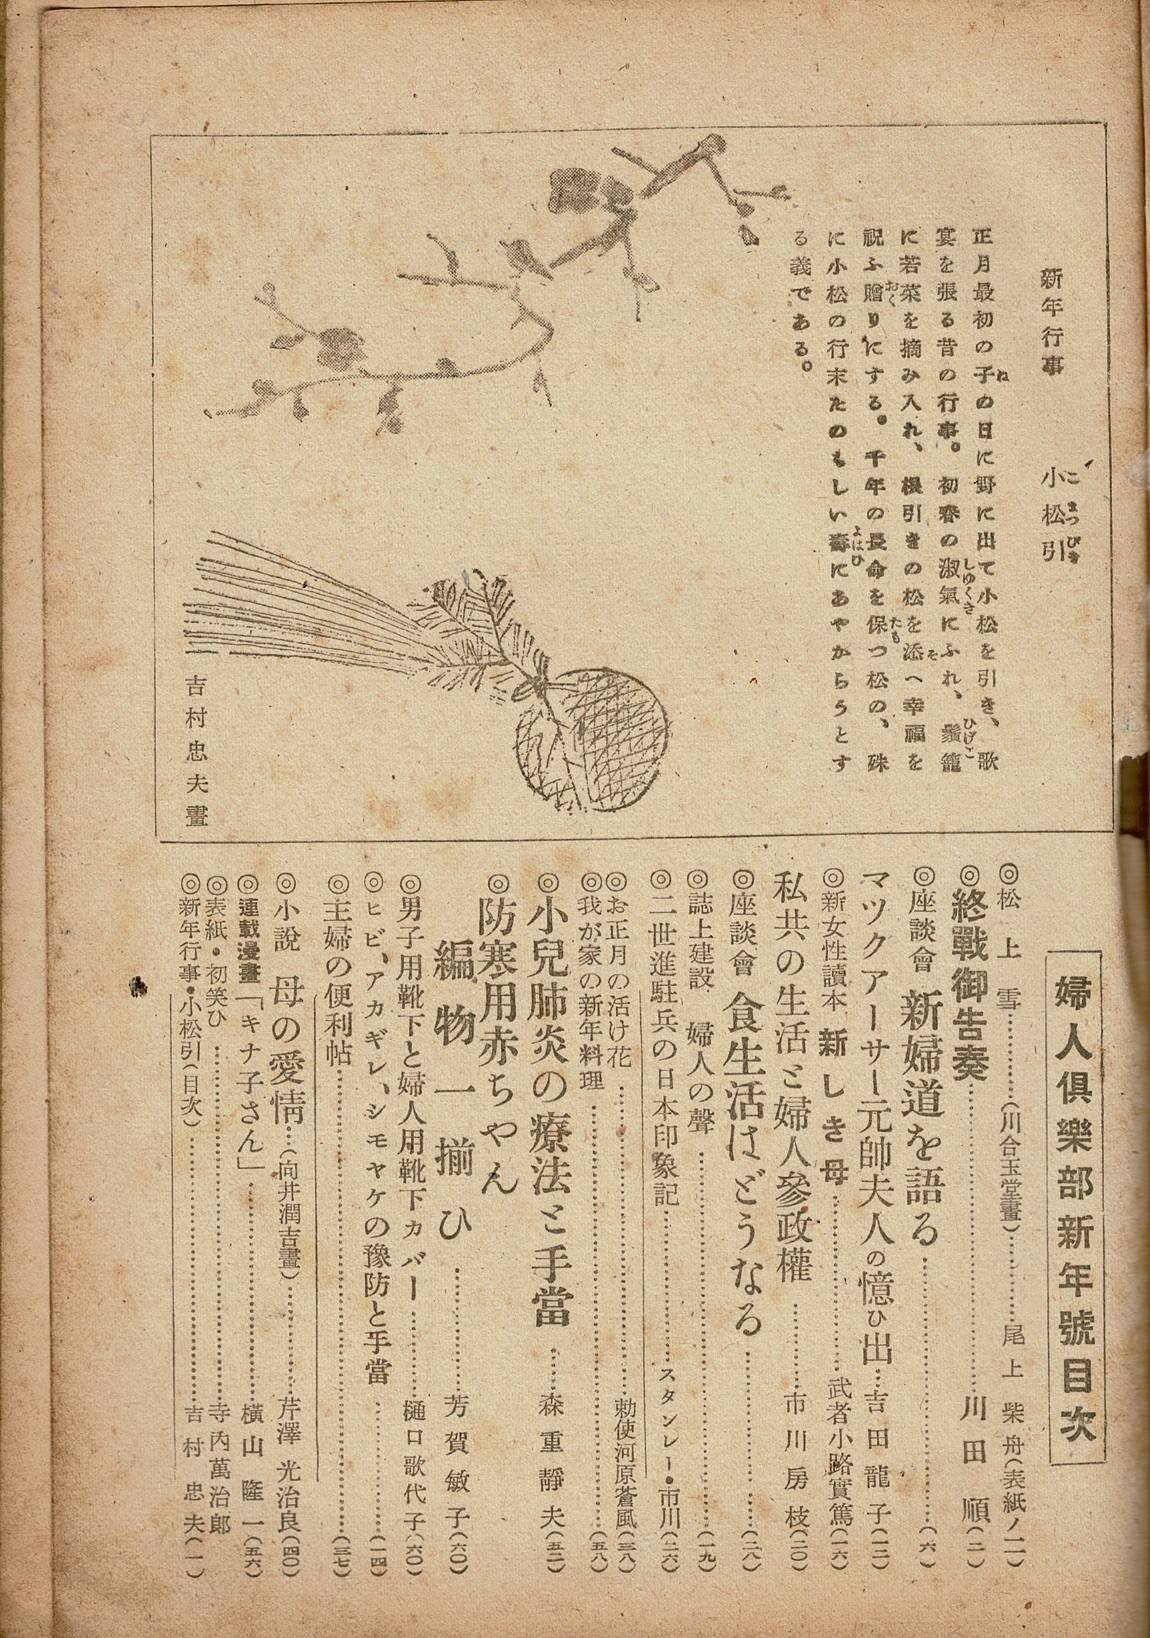 新年行事　小松引
正月最初の子の日に野に出て小松を引き、歌
宴を張る昔の行事。初春の淑氣にふれ、鬚籠
に若菜を摘み入れ、根引きの松を添へ幸福を
祝ふ贈りにする。千年の長命を保つ松の、殊
に小松の行末たのもしい壽にあやからうとす
る義である。
吉村忠夫畫
婦人倶樂部新年號目次
◎松上雪…………(川合玉堂畫)…………尾上柴舟(表紙ノ二)
◎終戰御告奏…………川田順(二)
◎座談會　新婦道を語る…………(六)
マツクアーサー元帥夫人の憶ひ出…吉田龍子(一二)
◎新女性讀本　新しき母…………武者小路實篤(一六)
私共の生活と婦人參政權…………市川房枝(二〇)
◎座談會　食生活はどうなる…………(二八)
◎誌上建設　婦人の聲…………(一九)
◎二世進駐兵の日本印象記…………スタンレー・市川(二六)
◎お正月の活け花…………勅使河原蒼風(三八)
◎我が家の新年料理…………(五八)
◎小兒肺炎の療法と手當……森重靜夫(五二)
◎防寒用赤ちやん
編物一揃ひ…………芳賀敏子(六〇)
◎男子用靴下と婦人用靴下カバー…………樋口歌代子(六〇)
◎ヒビ、アカギレ、シモヤケの豫防と手當…………(一四)
◎主婦の便利帖…………(三七)
◎小説　母の愛情…(向井潤吉畫)…………芹澤光治良(四〇)
◎連載漫畫「キナ子さん」…………横山隆一(五六)
◎表紙・初笑ひ…………寺内萬治郎
◎新年行事・小松引(目次)…………吉村忠夫(一)